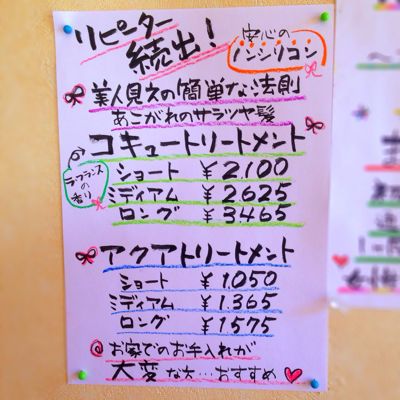 リピーター
続出!
安心の
ノンシリコン
美人見えの簡単な法則
あこがれのサラツヤ髪
コキュートリートメント
ラ・フランスの香り
ショート ¥2,100
ミディアム ¥2625
ロング ¥3465
アクアトリートメント
ショート ¥1,050
ミディアム ¥1,365
ロング ¥1575
お家でのお手入れが
大変な方…おすすめ